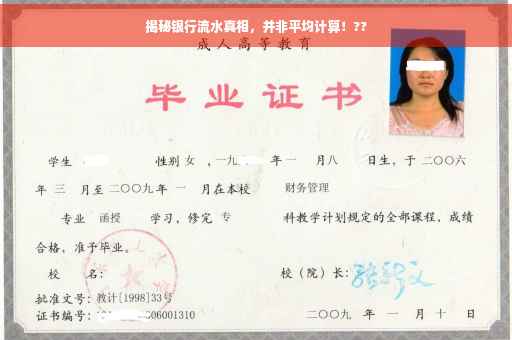 揭秘银行流水真相，并非平均计算！??
成人高等教育
毕业证书
学生 性别 女 ，一九 年 一 月八 日生，于 二〇〇六
年 三 月至 二〇〇九 年 一 月在本校 财务管理
专业 函授 学习，修完 专 科教学计划规定的全部课程，成绩
合格，准予毕业。
校 名： 校（院）长：
批准文号：教计[1998]33号
证书编号： 006001310 二〇〇九 年 一 月 十 日